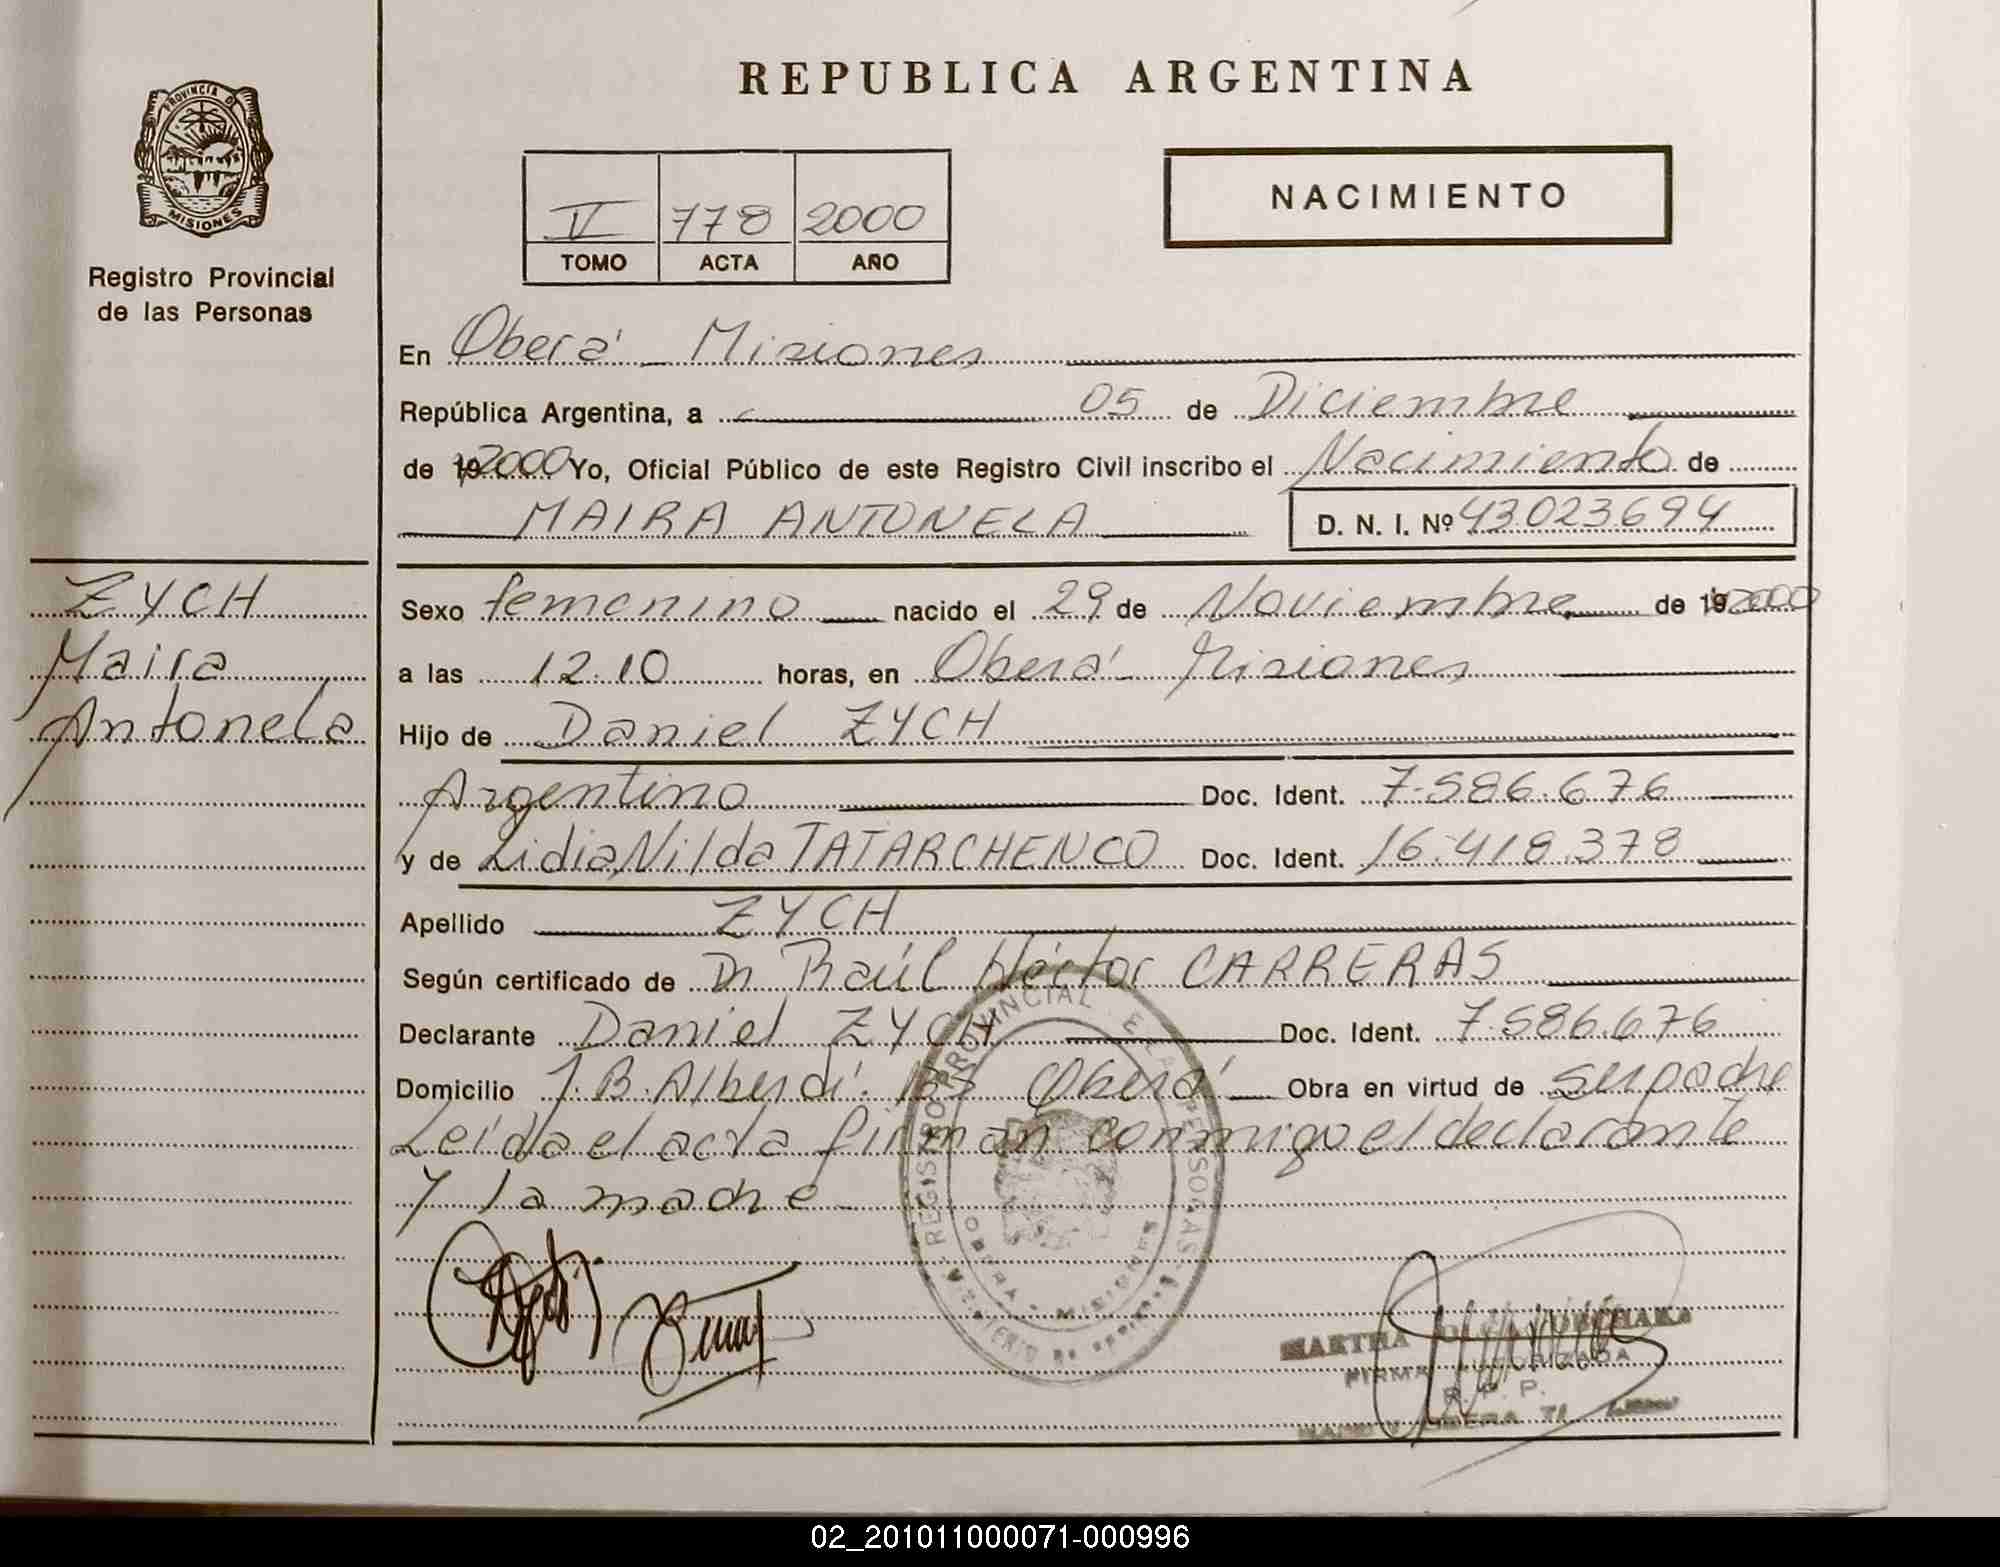 REPUBLICA ARGENTINA
PROVINCIA DE
MISIONES
Registro Provincial
de las Personas
V 778 2000
TOMO ACTA AÑO
NACIMIENTO
En Oberá - Misiones
República Argentina, a 05 de Diciembre
de 19 2000 Yo, Oficial Público de este Registro Civil inscribo el Nacimiento de
MAIRA ANTONELA D. N. I. Nº 43023694
ZYCH
Maira
Antonela
Sexo femenino nacido el 29 de Noviembre de 19 2000
a las 12.10 horas, en Oberá - Misiones
Hijo de Daniel ZYCH
Argentino Doc. Ident. 7.586.676
y de Lidia Nilda TATARCHENCO Doc. Ident. 16.418.378
Apellido ZYCH
Según certificado de Dr Raúl Héctor CARRERAS
Declarante Daniel ZYCH Doc. Ident. 7.586.676
Domicilio J.B. Alberdi Oberá Obra en virtud de ser padre
Leída el acta firman conmigo el declarante
y la madre
REGISTRO PROVINCIAL DE LAS PERSONAS
OBERA - MISIONES
MARTHA
FIRMA AUTORIZADA
R. P. P.
02_201011000071-000996